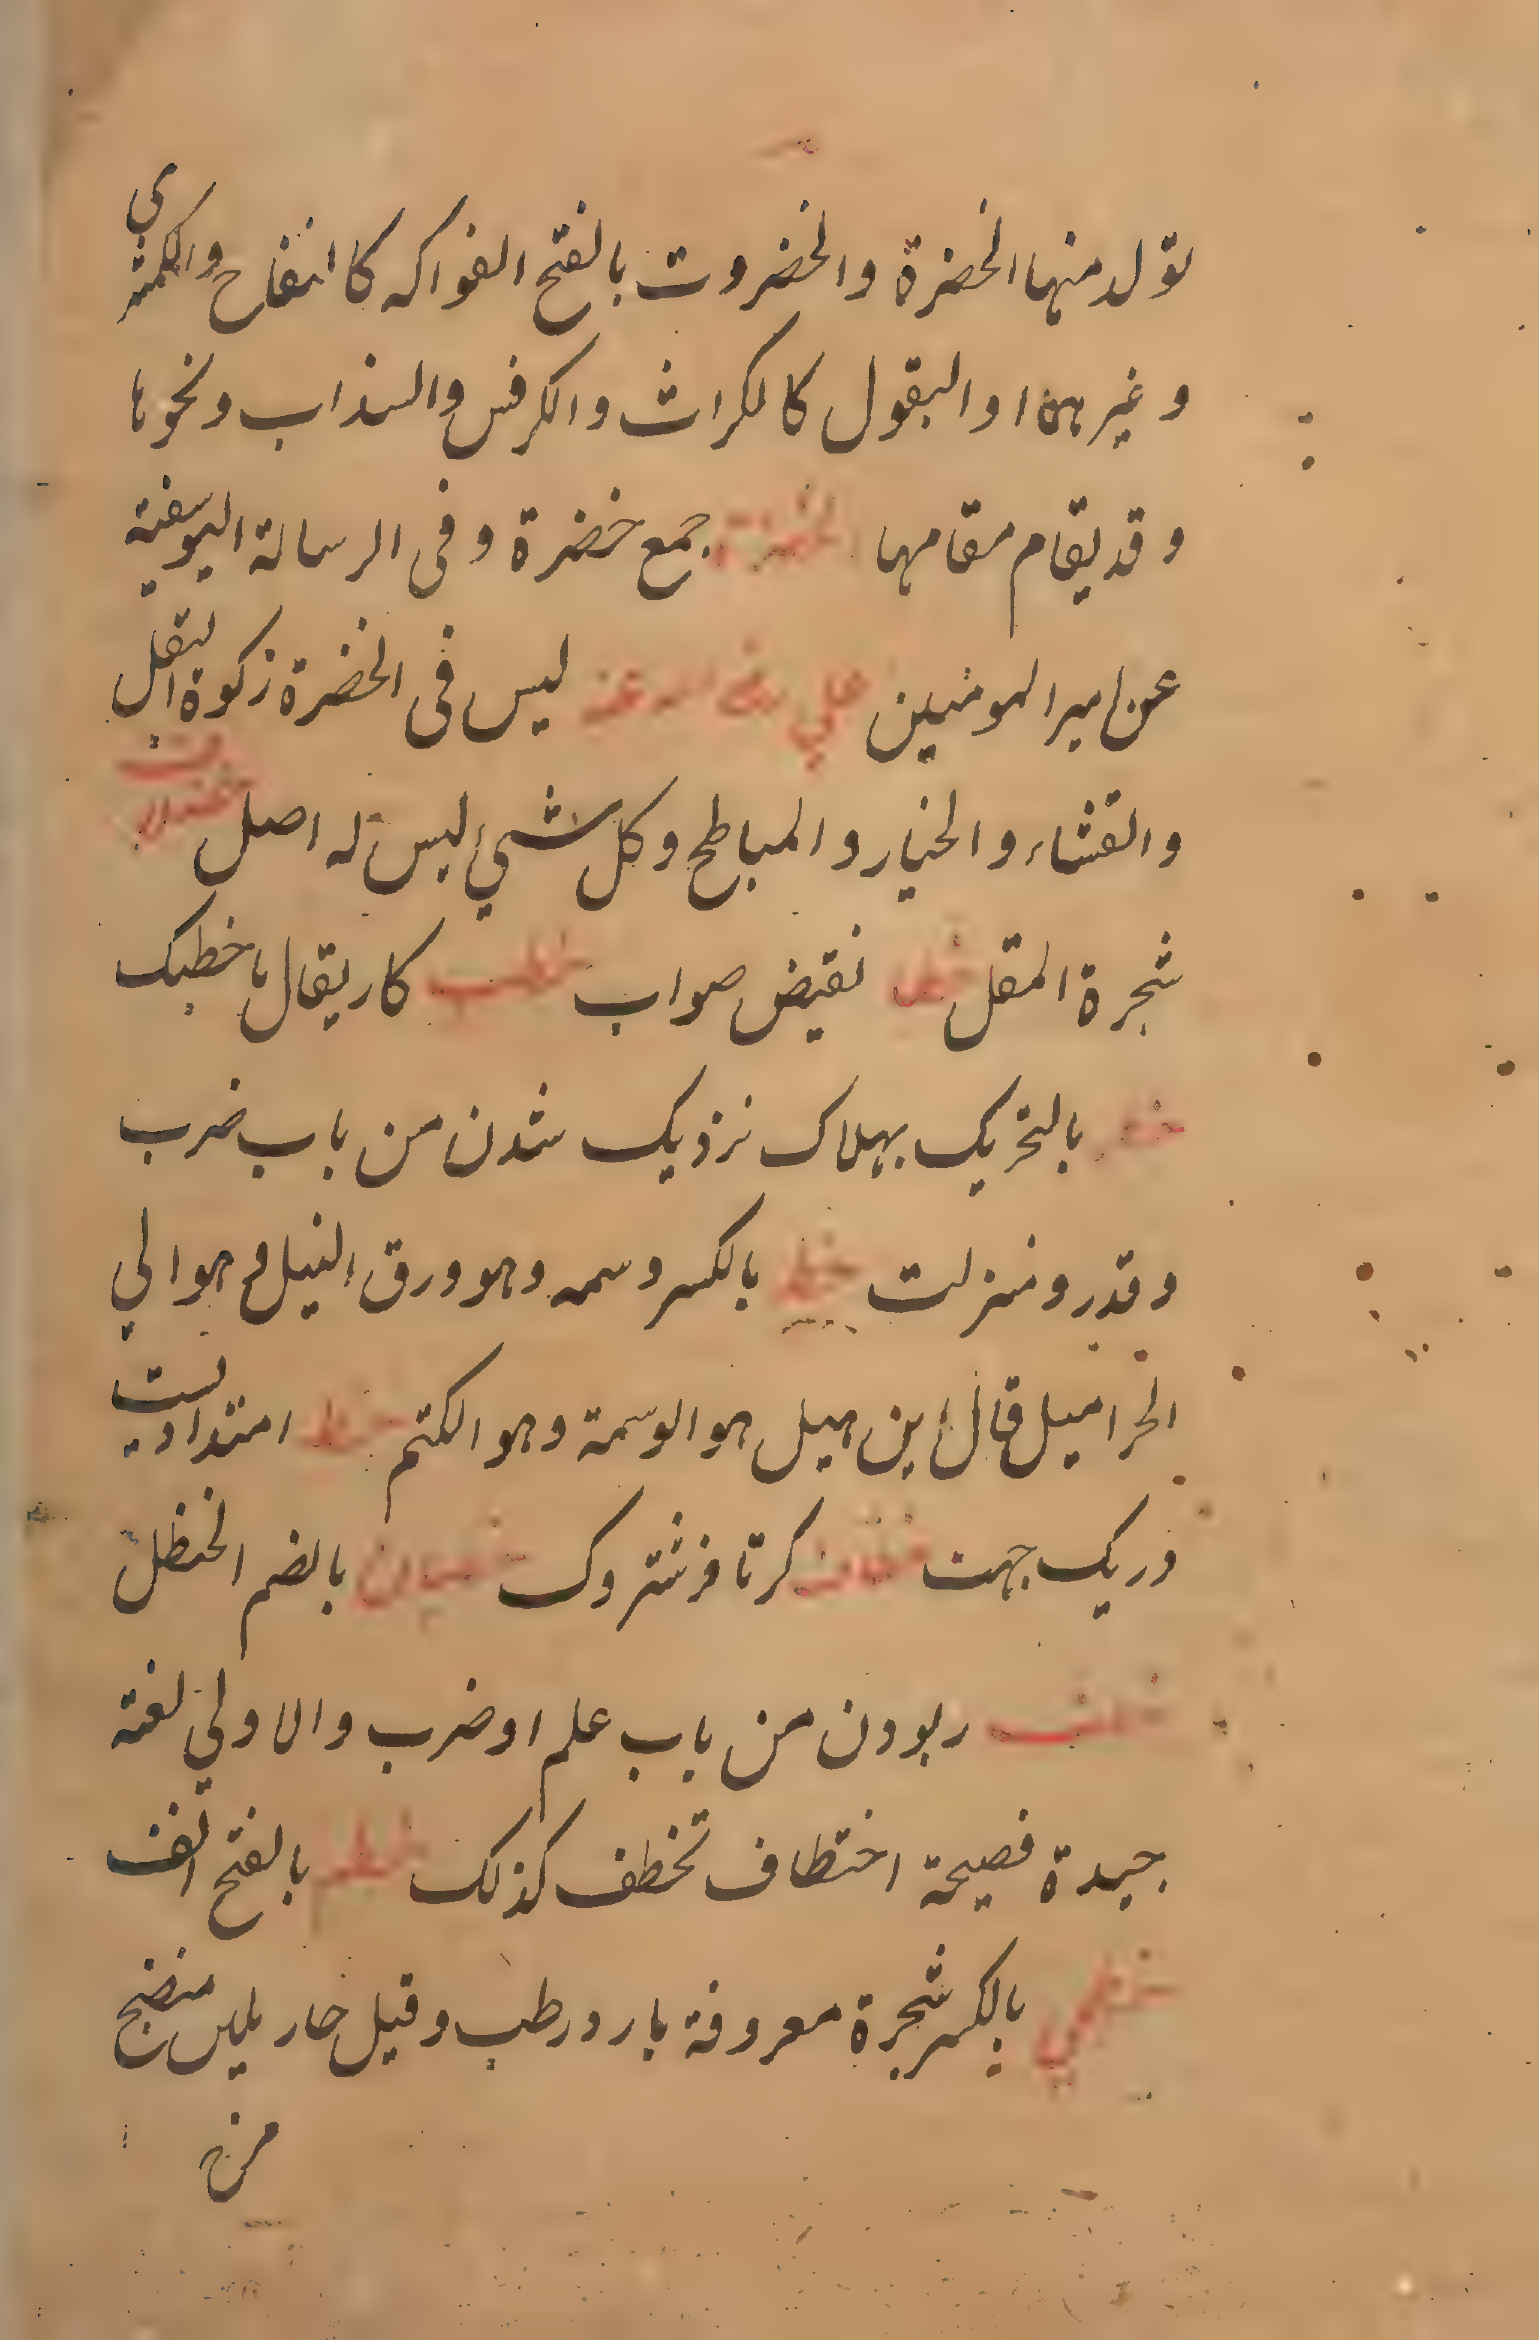 تولد منها الخضرة والخضروت بالفتح الفواكه كالتفاح والكمثرى
وغيرهما والبقول كالكراث والكرفس والسذاب ونحوها
وقد يقام مقامها الخضرة جمع خضرة وفى الرسالة اليوسفية
عن امير المومنين علي رضى الله عنه ليس فى الخضرة زكوة البقل
والقثاء والخيار والمباطح وكل شيء ليس له اصل خضلاف
شجرة المقل خطا نقيض صواب خطب كار يقال ما خطبك
خطر بالتحريك بهلاك نزديك شدن من باب ضرب
وقدر ومنزلت خطر بالكسر وسمه وهو ورق النيل وهو الي
الحراميل قال ابن هبل هو الوسمة وهو الكتم خط امتداديست
در يك جهت خطاف فرشتروك خطبان بالضم الحنظل
خطف ربودن من باب علم او ضرب والاولي لغة
جيدة فصيحة اختطاف تخطف كذلك خطم بالفتح انف
خطمي بالكسر شجرة معروفة بارد رطب وقيل حار يابس منضج